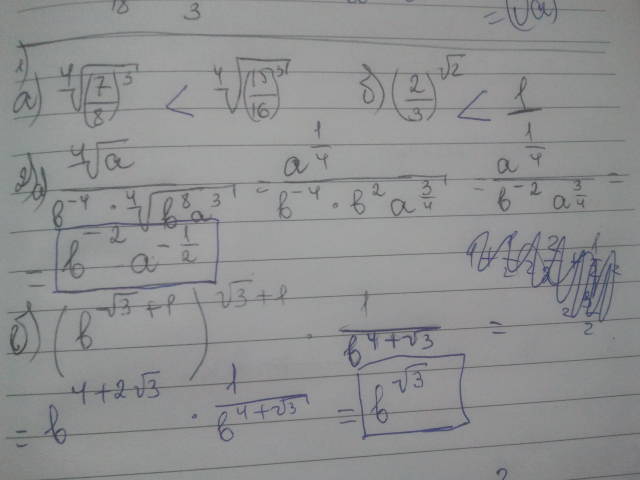 18 3 = (√a)
1)
а) ⁴√(7/8)³ < ⁴√(15/16)³ б) (2/3)^√2 < 1
2) а) ⁴√a / (b⁻⁴ · ⁴√(b⁸a³)) = a^(1/4) / (b⁻⁴ · b² a^(3/4)) = a^(1/4) / (b⁻² a^(3/4)) =
= b⁻² a^(-1/2)
б) (b^(√3+1))^(√3+1) · 1/b^(4+√3) =
= b^(4+2√3) · 1/b^(4+√3) = b^√3